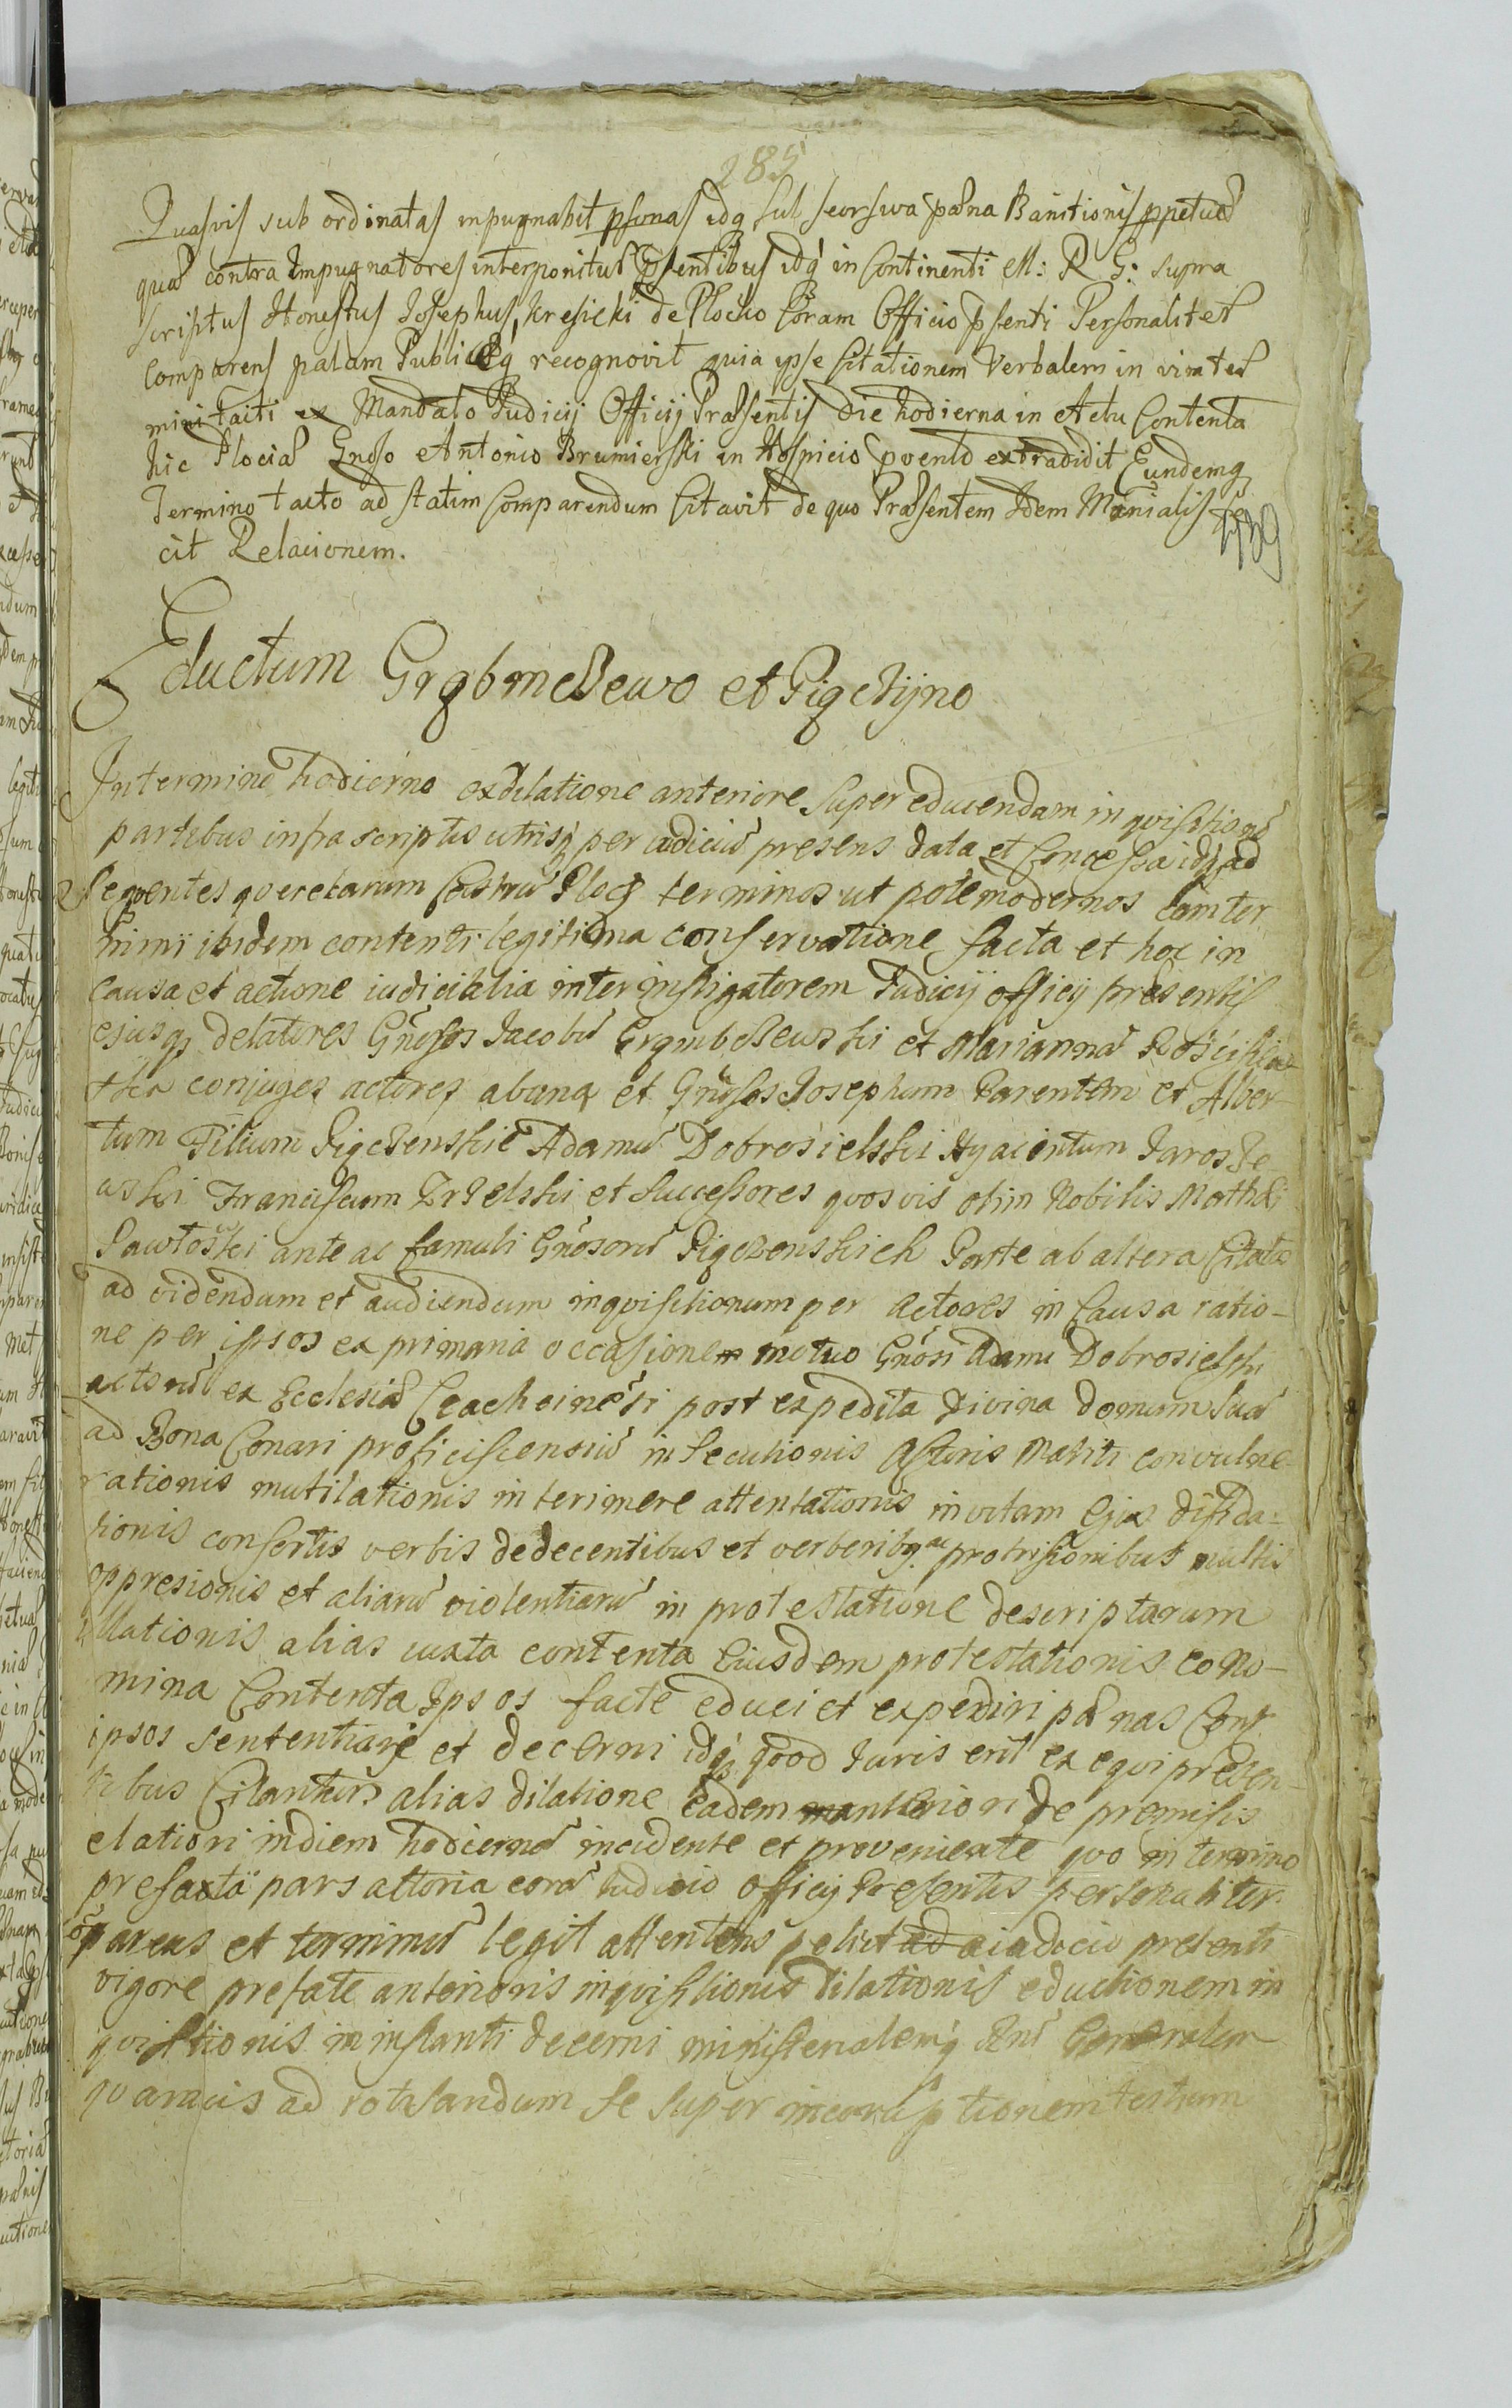 285
Quasvis sub ordinatas inpugnabit psonas idq sub seorsiva pæna Banitionis ppetuæ
quæ contra Impugnatores interponitur psentibus idq in Continenti M: R G: supra
scriptus Honestus Josephus Kresicki de Plocko Coram Officio psenti Personaliter
comparens palam Publiceq recognovit quia ipse Citationem Verbalem in vim ter
mini taiti ex Mandato Judicij Officij Præsentis die hodierna in Actu Contenta
hic Plociæ Gnoso Antonio Brumierski in Hospicio extradidit Eundemq
Termino tacto ad statim Comparendum Citavit de quo Præsentem Idem Minialis fe
cit Relacionem.
Eductum et
In termino hodierno ex dilatione anteriore super educendam inqvisitionē
partibus infra scriptis utrisq per iudiciū presens data et Concessa idq ad
seqventes qverelarum Castrū Ploc terminos ut pote modernos eam ter
mini ibidem contenti legitima conservatione facta et hoc in
causa et actione iudicialia inter instigatorem Judicij officij presentis
ejusq delatores Gnosos Jacobū et Mariannā
conjuges actores ab una et Gnosos Josephum Parentem et Alber-
tum Filium Adamū Dobrosielski Hyacintum Jarosze
wski Franciscum et Successores qvosvis olim Nobilis Mathæi
Pawłowski ante ac famuli Gnosorū Parte ab altera Citatæ
ad videndum et audiendum inqvisitionum per actores in Causa ratio-
ne per ipsos ex primaria occasione motivo Gnosi Adami Dobrosielski
actorū ex Ecclesia post expedita divina domum suā
ad Bona Conari proficiscensiū insecutionis Actoris Mariti convulne
rationis mutilationis interimere attentationis in vitam Ejus diffida-
tionis consertis verbis dedecentibus et verberibq ac protrisionibus multis
oppresionis et aliarū violentiarū in protestatione descriptarum
illationis alias iuxta contenta Eiusdem protestationis eo No-
mina Contenta Ipsos facte educi et expediri pænas Cont
ipsos sententiari et decerni idq qvod Juris erit exeqvi presen-
tibus Citantur alias dilatione Eadem anteriori de premissis
elatiori in diem hodiernā incidente et proveniente qvo in termino
prefaxto pars actoria corā Judicio officij Presentis personaliter
parens et terminū legit attentens petiit a iudicio presenti
vigore prefate anterioris inqvisitionis dilationis eductionem in
qvisitionis in instanti decerni ministerialemq Generalem
ad rotisandum se super incoruptionem testium